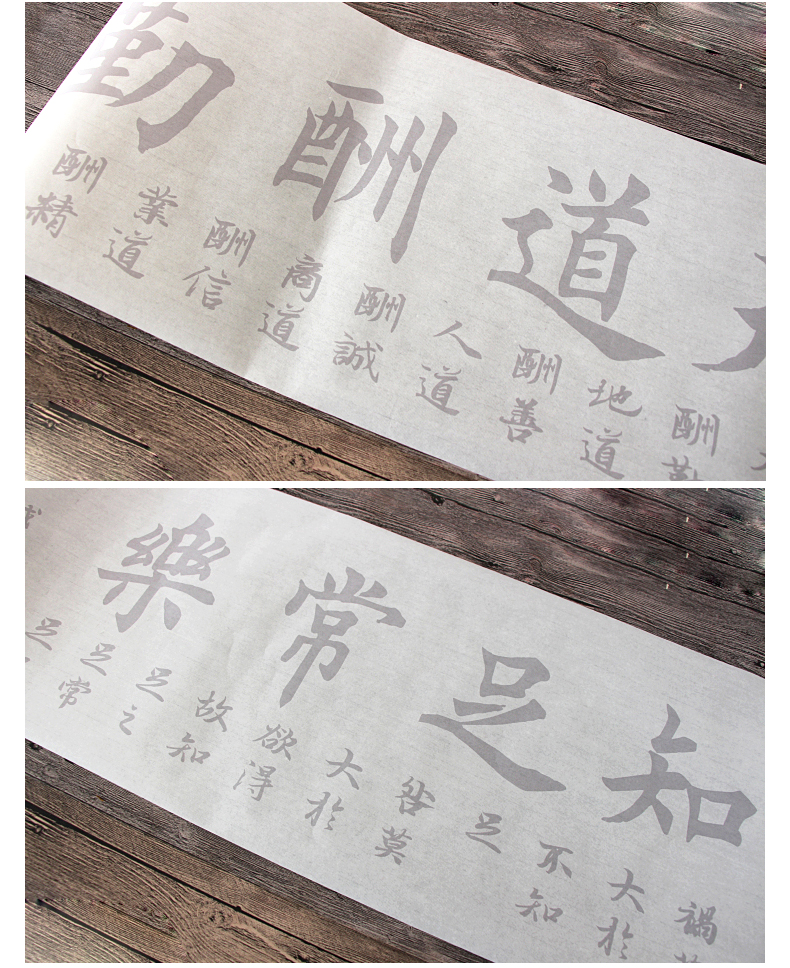 道酬勤
酬勤
地道
酬善
人道
酬誠
商道
酬信
業道
酬精
知足常樂
禍
大於
不知
足
咎莫
大於
欲得
故知
足之
足常
足